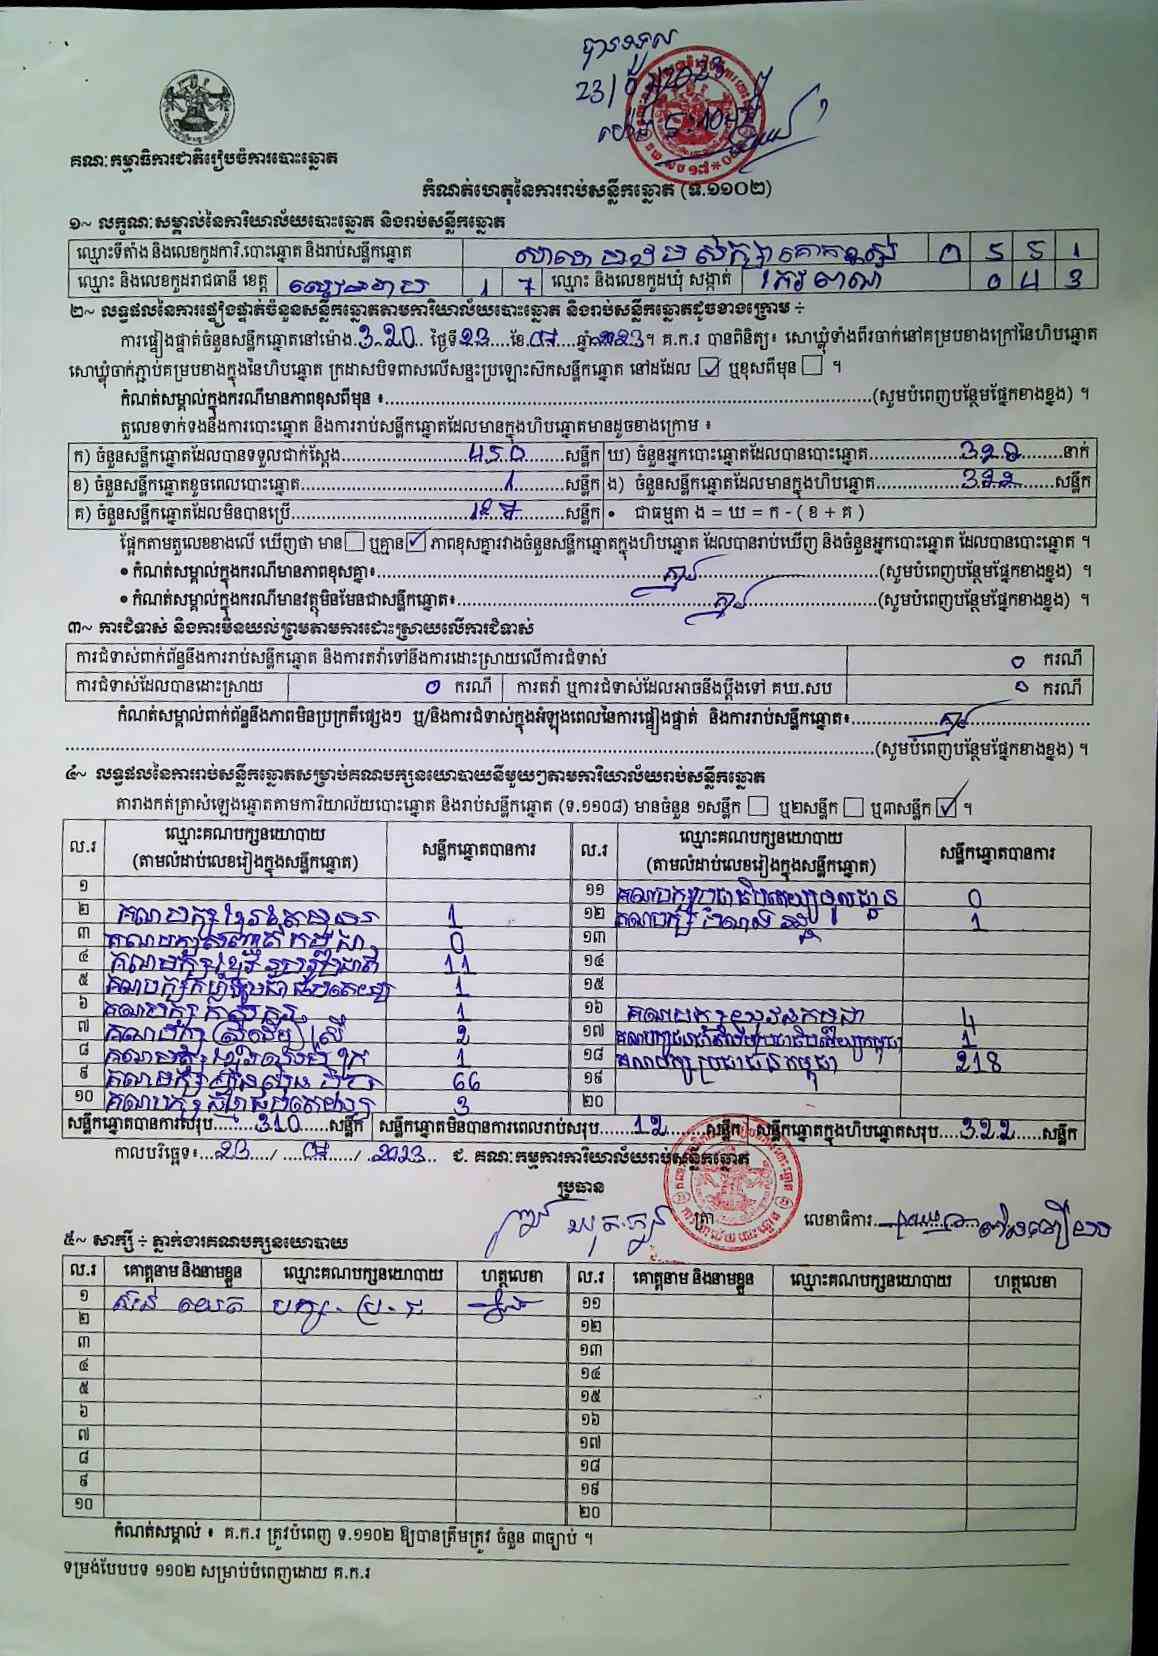 បានទទួល
គណៈកម្មាធិការជាតិរៀបចំការបោះឆ្នោត
កំណត់ហេតុនៃការរាប់សន្លឹកឆ្នោត (ទ.១១០២)
១~ លក្ខណៈសម្គាល់នៃការិយាល័យបោះឆ្នោត និងរាប់សន្លឹកឆ្នោត
ឈ្មោះទីតាំង និងលេខកូដការិ.បោះឆ្នោត និងរាប់សន្លឹកឆ្នោត សាលាបឋមសិក្សាគោកខ្ពស់ 0 5 5 1
ឈ្មោះ និងលេខកូដរាជធានី ខេត្ត សៀមរាប 1 7 ឈ្មោះ និងលេខកូដឃុំ សង្កាត់ 0 4 3
២~ លទ្ធផលនៃការផ្ទៀងផ្ទាត់ចំនួនសន្លឹកឆ្នោតតាមការិយាល័យបោះឆ្នោត និងរាប់សន្លឹកឆ្នោតដូចខាងក្រោម ÷
ការផ្ទៀងផ្ទាត់ចំនួនសន្លឹកឆ្នោតនៅម៉ោង 3.20 ថ្ងៃទី 23 ខែ 07 ឆ្នាំ 2023 ។ គ.ក.រ បានពិនិត្យ៖ សោឃ្លុំទាំងពីរចាក់នៅគម្របខាងក្រៅនៃហិបឆ្នោត
សោឃ្លុំចាក់ភ្ជាប់គម្របខាងក្នុងនៃហិបឆ្នោត ក្រដាសបិទពាសលើសន្ទះប្រឡោះស៊កសន្លឹកឆ្នោត នៅដដែល ☑ ឬខុសពីមុន ☐ ។
កំណត់សម្គាល់ក្នុងករណីមានភាពខុសពីមុន ៖ (សូមបំពេញបន្ថែមផ្នែកខាងខ្នង) ។
តួលេខទាក់ទងនឹងការបោះឆ្នោត និងការរាប់សន្លឹកឆ្នោតដែលមានក្នុងហិបឆ្នោតមានដូចខាងក្រោម ៖
ក) ចំនួនសន្លឹកឆ្នោតដែលបានទទួលជាក់ស្តែង 450 សន្លឹក ឃ) ចំនួនអ្នកបោះឆ្នោតដែលបានបោះឆ្នោត 322 នាក់
ខ) ចំនួនសន្លឹកឆ្នោតខូចពេលបោះឆ្នោត 1 សន្លឹក ង) ចំនួនសន្លឹកឆ្នោតដែលមានក្នុងហិបឆ្នោត 322 សន្លឹក
គ) ចំនួនសន្លឹកឆ្នោតដែលមិនបានប្រើ 127 សន្លឹក • ជាធម្មតា ង = ឃ = ក - ( ខ + គ )
ផ្អែកតាមតួលេខខាងលើ ឃើញថា មាន ☐ ឬគ្មាន ☑ ភាពខុសគ្នារវាងចំនួនសន្លឹកឆ្នោតក្នុងហិបឆ្នោត ដែលបានរាប់ឃើញ និងចំនួនអ្នកបោះឆ្នោត ដែលបានបោះឆ្នោត ។
• កំណត់សម្គាល់ក្នុងករណីមានភាពខុសគ្នា៖ គ្មាន (សូមបំពេញបន្ថែមផ្នែកខាងខ្នង) ។
• កំណត់សម្គាល់ក្នុងករណីមានវត្ថុមិនមែនជាសន្លឹកឆ្នោត៖ គ្មាន (សូមបំពេញបន្ថែមផ្នែកខាងខ្នង) ។
៣~ ការជំទាស់ និងការមិនយល់ព្រមតាមការដោះស្រាយលើការជំទាស់
ការជំទាស់ពាក់ព័ន្ធនឹងការរាប់សន្លឹកឆ្នោត និងការតវ៉ាទៅនឹងការដោះស្រាយលើការជំទាស់ 0 ករណី
ការជំទាស់ដែលបានដោះស្រាយ 0 ករណី ការតវ៉ា ឬការជំទាស់ដែលអាចនឹងប្តឹងទៅ គឃ.សប 0 ករណី
កំណត់សម្គាល់ពាក់ព័ន្ធនឹងភាពមិនប្រក្រតីផ្សេងៗ ឬ/និងការជំទាស់ក្នុងអំឡុងពេលនៃការផ្ទៀងផ្ទាត់ និងការរាប់សន្លឹកឆ្នោត៖ គ្មាន
(សូមបំពេញបន្ថែមផ្នែកខាងខ្នង) ។
៤~ លទ្ធផលនៃការរាប់សន្លឹកឆ្នោតសម្រាប់គណបក្សនយោបាយនីមួយៗតាមការិយាល័យរាប់សន្លឹកឆ្នោត
តារាងកត់ត្រាសំឡេងឆ្នោតតាមការិយាល័យបោះឆ្នោត និងរាប់សន្លឹកឆ្នោត (ទ.១១០៨) មានចំនួន ១សន្លឹក ☐ ឬ២សន្លឹក ☐ ឬ៣សន្លឹក ☑ ។
ល.រ ឈ្មោះគណបក្សនយោបាយ (តាមលំដាប់លេខរៀងក្នុងសន្លឹកឆ្នោត) សន្លឹកឆ្នោតបានការ ល.រ ឈ្មោះគណបក្សនយោបាយ (តាមលំដាប់លេខរៀងក្នុងសន្លឹកឆ្នោត) សន្លឹកឆ្នោតបានការ
១ ១១ គណបក្សប្រជាធិបតេយ្យមូលដ្ឋាន 0
២ គណបក្ស 1 ១២ គណបក្ស 1
៣ គណបក្ស 0 ១៣
៤ គណបក្ស 11 ១៤
៥ គណបក្ស 1 ១៥
៦ គណបក្ស 1 ១៦ គណបក្សយុវជនកម្ពុជា 4
៧ គណបក្ស 2 ១៧ គណបក្ស 1
៨ គណបក្ស 1 ១៨ គណបក្សប្រជាជនកម្ពុជា 218
៩ គណបក្សហ៊្វុនស៊ិនប៉ិច 66 ១៩
១០ គណបក្ស 3 ២០
សន្លឹកឆ្នោតបានការសរុប 310 សន្លឹក សន្លឹកឆ្នោតមិនបានការពេលរាប់សរុប 12 សន្លឹក សន្លឹកឆ្នោតក្នុងហិបឆ្នោតសរុប 322 សន្លឹក
កាលបរិច្ឆេទ៖ 23 / 07 / 2023 ជ. គណៈកម្មការការិយាល័យរាប់សន្លឹកឆ្នោត
ប្រធាន
ត្រា លេខាធិការ
៥~ សាក្សី ÷ ភ្នាក់ងារគណបក្សនយោបាយ
ល.រ គោត្តនាម និងនាមខ្លួន ឈ្មោះគណបក្សនយោបាយ ហត្ថលេខា ល.រ គោត្តនាម និងនាមខ្លួន ឈ្មោះគណបក្សនយោបាយ ហត្ថលេខា
១ បក្ស ប្រ.ជ ១១
២ ១២
៣ ១៣
៤ ១៤
៥ ១៥
៦ ១៦
៧ ១៧
៨ ១៨
៩ ១៩
១០ ២០
កំណត់សម្គាល់ ៖ គ.ក.រ ត្រូវបំពេញ ទ.១១០២ ឱ្យបានត្រឹមត្រូវ ចំនួន ៣ច្បាប់ ។
ទម្រង់បែបបទ ១១០២ សម្រាប់បំពេញដោយ គ.ក.រ